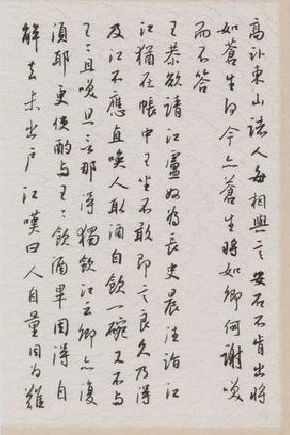 高臥東山諸人每相與言安石不肯出將
如蒼生何今亦蒼生將如卿何謝笑
而不答
王恭欲請江盧奴為長史晨往詣江
江猶在帳中王坐不敢即言良久乃得
及江不應直喚人取酒自飲一碗又不与
王々且笑且言那得獨飲江云卿亦復
須耶更使酌与王々飲酒畢因得自
解去未出戶江嘆曰人自量固為難